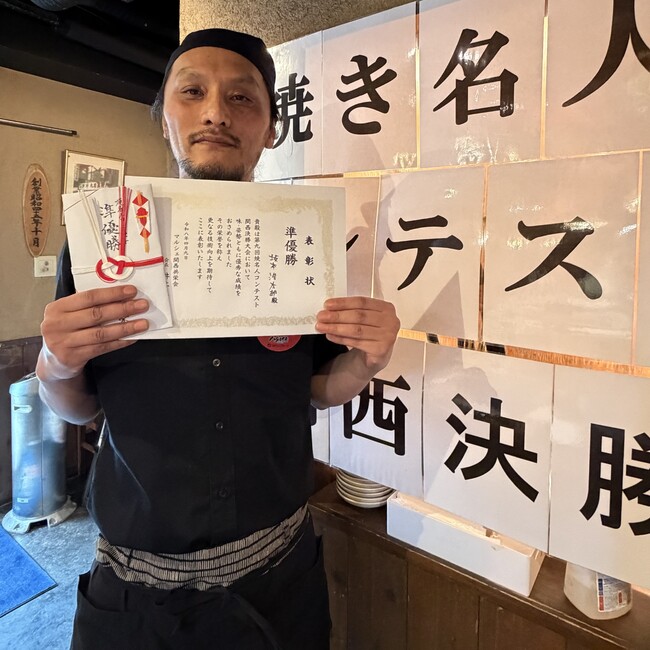 焼き名人
ンテスト
西決勝
創業昭和四五年十一月
準優勝
表彰状
準優勝
殿
貴殿は第九回焼名人コンテスト
関西決勝大会において
味・姿勢ともに優秀な成績を
おさめられました
その栄誉を称え
更なる技術向上を期待して
ここに表彰いたします
令和八年四月八日
マルシェ関西共栄会